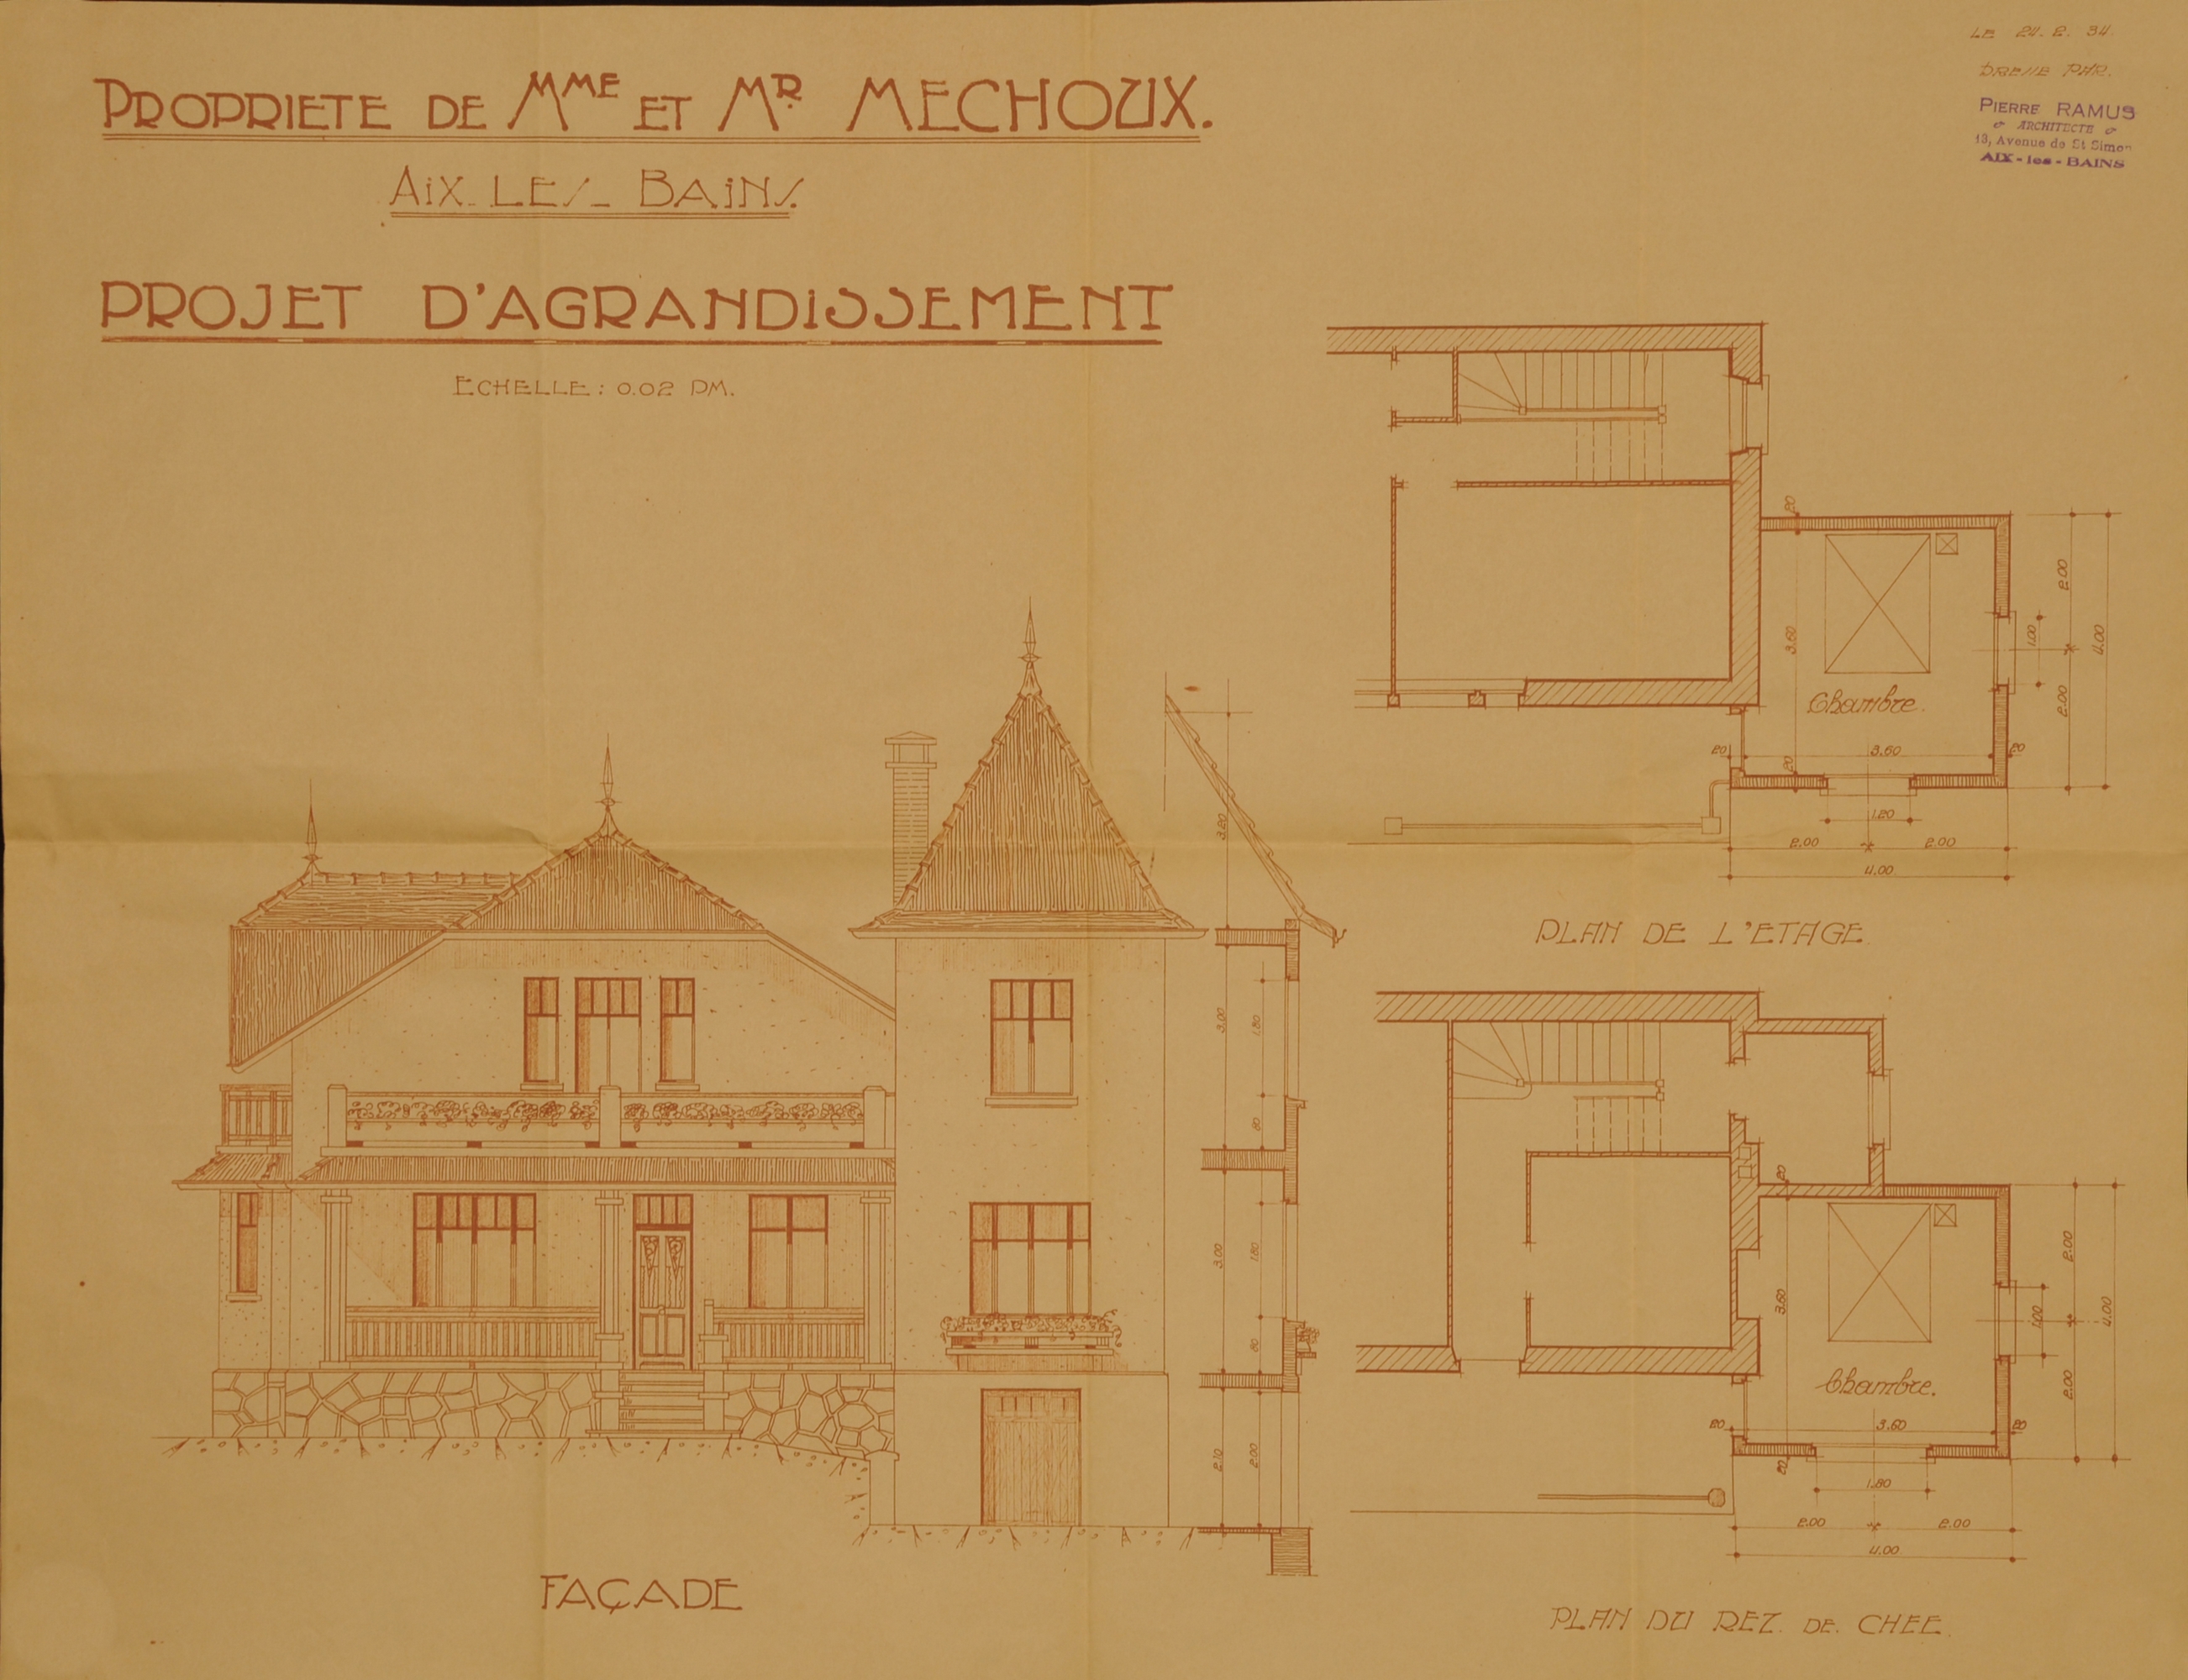 PROPRIETE DE MME ET MR MECHOUX.
AIX-LES-BAINS.
PROJET D'AGRANDISSEMENT
ECHELLE: 0.02 PM.
LE 24.2.34.
DRESSE PAR.
PIERRE RAMUS
ARCHITECTE
13, Avenue de St Simon
AIX-les-BAINS
20
2.00
1.00
4.00
3.60
2.00
Chambre.
20
3.60
20
20
1.20
2.00
2.00
4.00
PLAN DE L'ETAGE
3.20
3.00
1.80
80
3.00
1.80
80
2.10
2.00
FAÇADE
20
2.00
3.60
1.00
4.00
2.00
Chambre.
20
3.60
20
20
1.80
2.00
2.00
4.00
PLAN DU REZ. DE. CHEE.